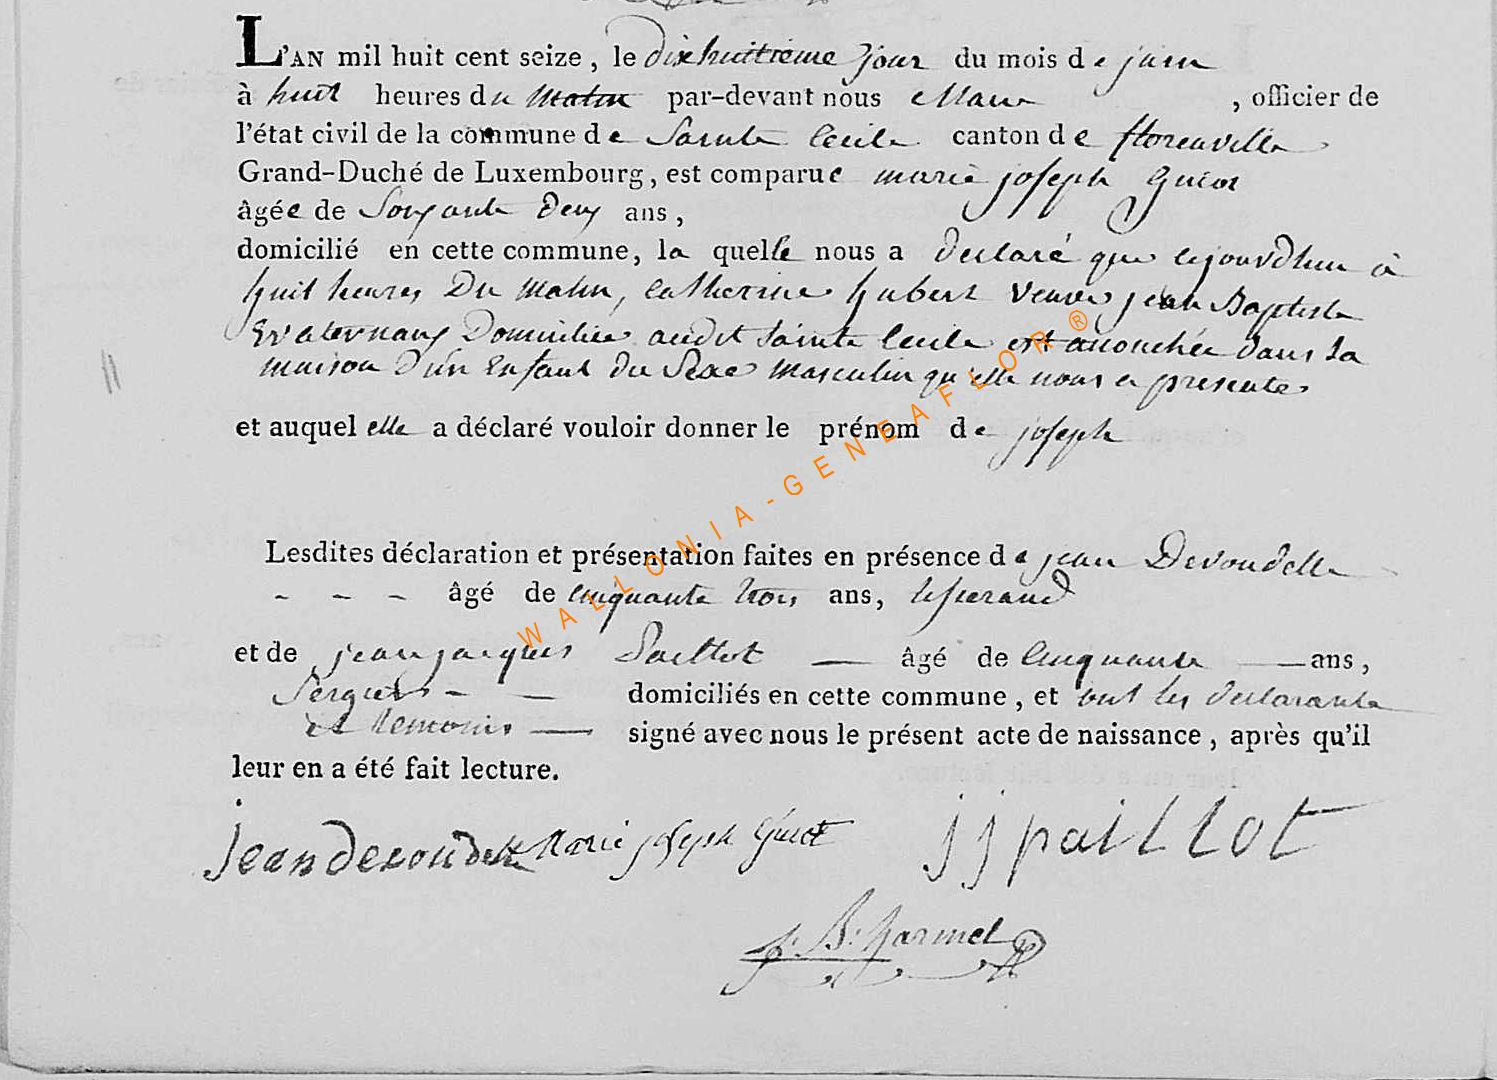 L'AN mil huit cent seize, le dixhuitieme jour du mois de juin
à huit heures du Matin par-devant nous Maire , officier de
l'état civil de la commune de Sainte Cecile canton de florenville
Grand-Duché de Luxembourg, est comparue marie joseph Guiot
âgée de Soixante Deux ans,
domicilié en cette commune, la quelle nous a declaré que cejourdhui à
huit heures Du Matin, Catherine hubert veuve jean Baptiste
Domiciliée audit Sainte Cecile est accouchée dans sa
maison d'un Enfant du Sexe Masculin qu'elle nous a presente
et auquel elle a déclaré vouloir donner le prénom de joseph
Lesdites déclaration et présentation faites en présence de jean Devoudelle
- - - âgé de Cinquante trois ans, tisserand
et de jean jacques Paillot — âgé de Cinquante — ans,
Sergers - — domiciliés en cette commune, et ont les declarante
et temoins — signé avec nous le présent acte de naissance, après qu'il
leur en a été fait lecture.
jean devoudelle Marie joseph Guiot jjpaillot
j. B. harmel
WALLONIA-GENEAFLOR ®